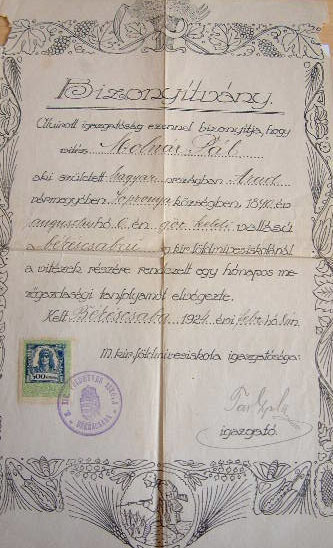 Bizonyítvány.
Alulirott igazgatóság ezennel bizonyítja, hogy
vitéz Molnár Pál
aki született Magyar országban Arad
vármegyében községben, 1890. év
augusztus hó 6. én gör. keleti vallású
a békéscsabai m. kir. földmivesiskolánál
a vitézek részére rendezett egy hónapos me-
zőgazdasági tanfolyamot elvégezte.
Kelt Békéscsaba, 1924. évi febr. hó
M. kir. földmivesiskola igazgatósága:
igazgató.
500
BÉKÉSCSABA